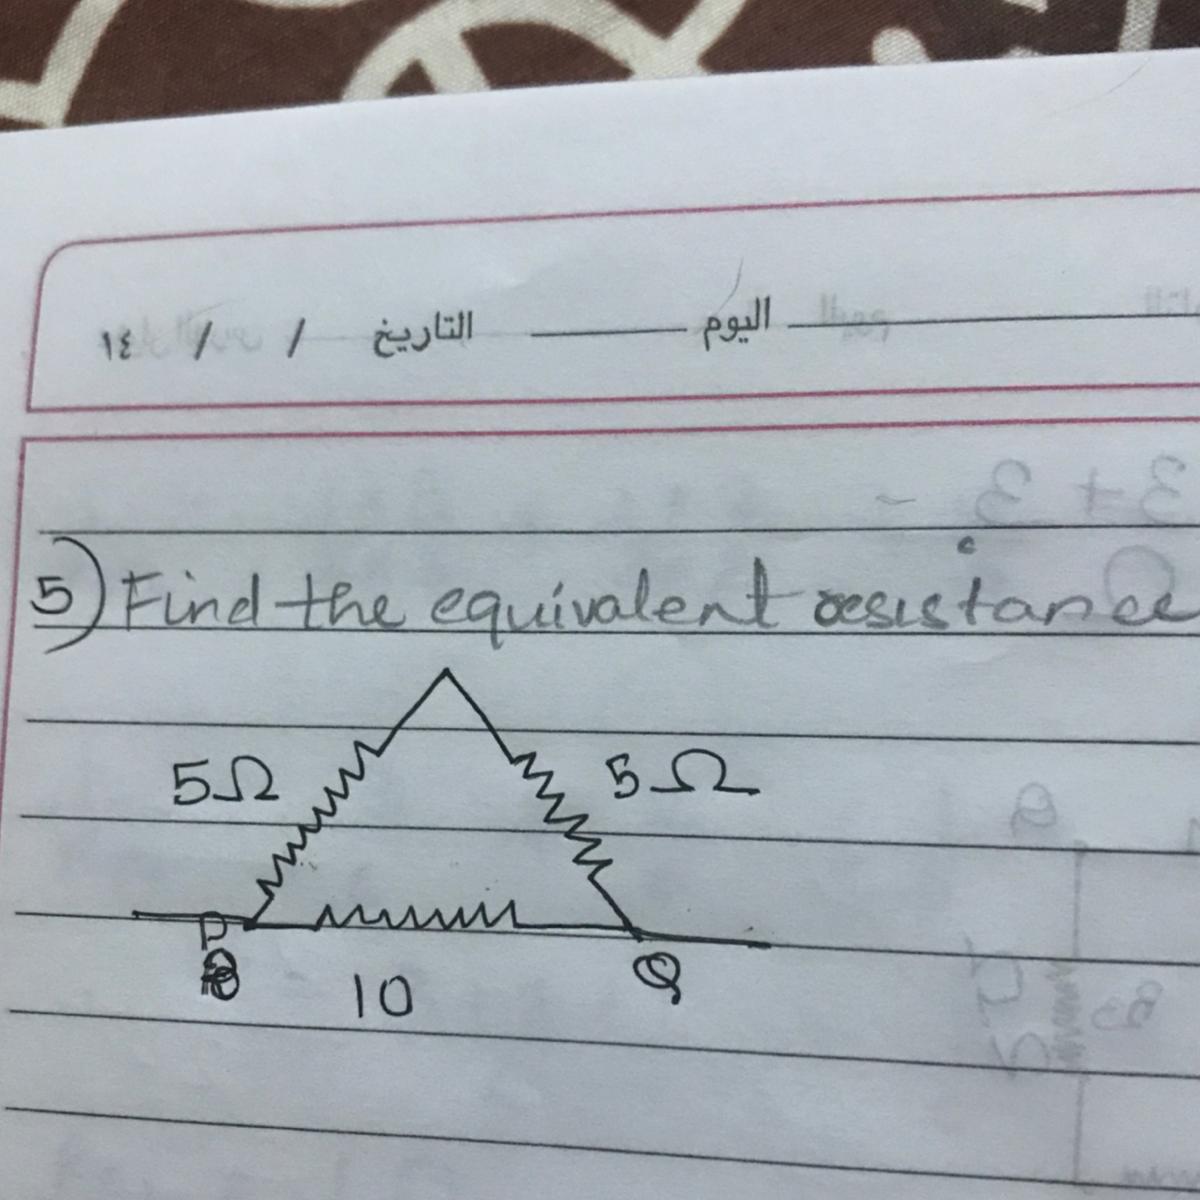 اليوم التاريخ / / ١٤
5) Find the equivalent resistance
5Ω 5Ω
P Q
10